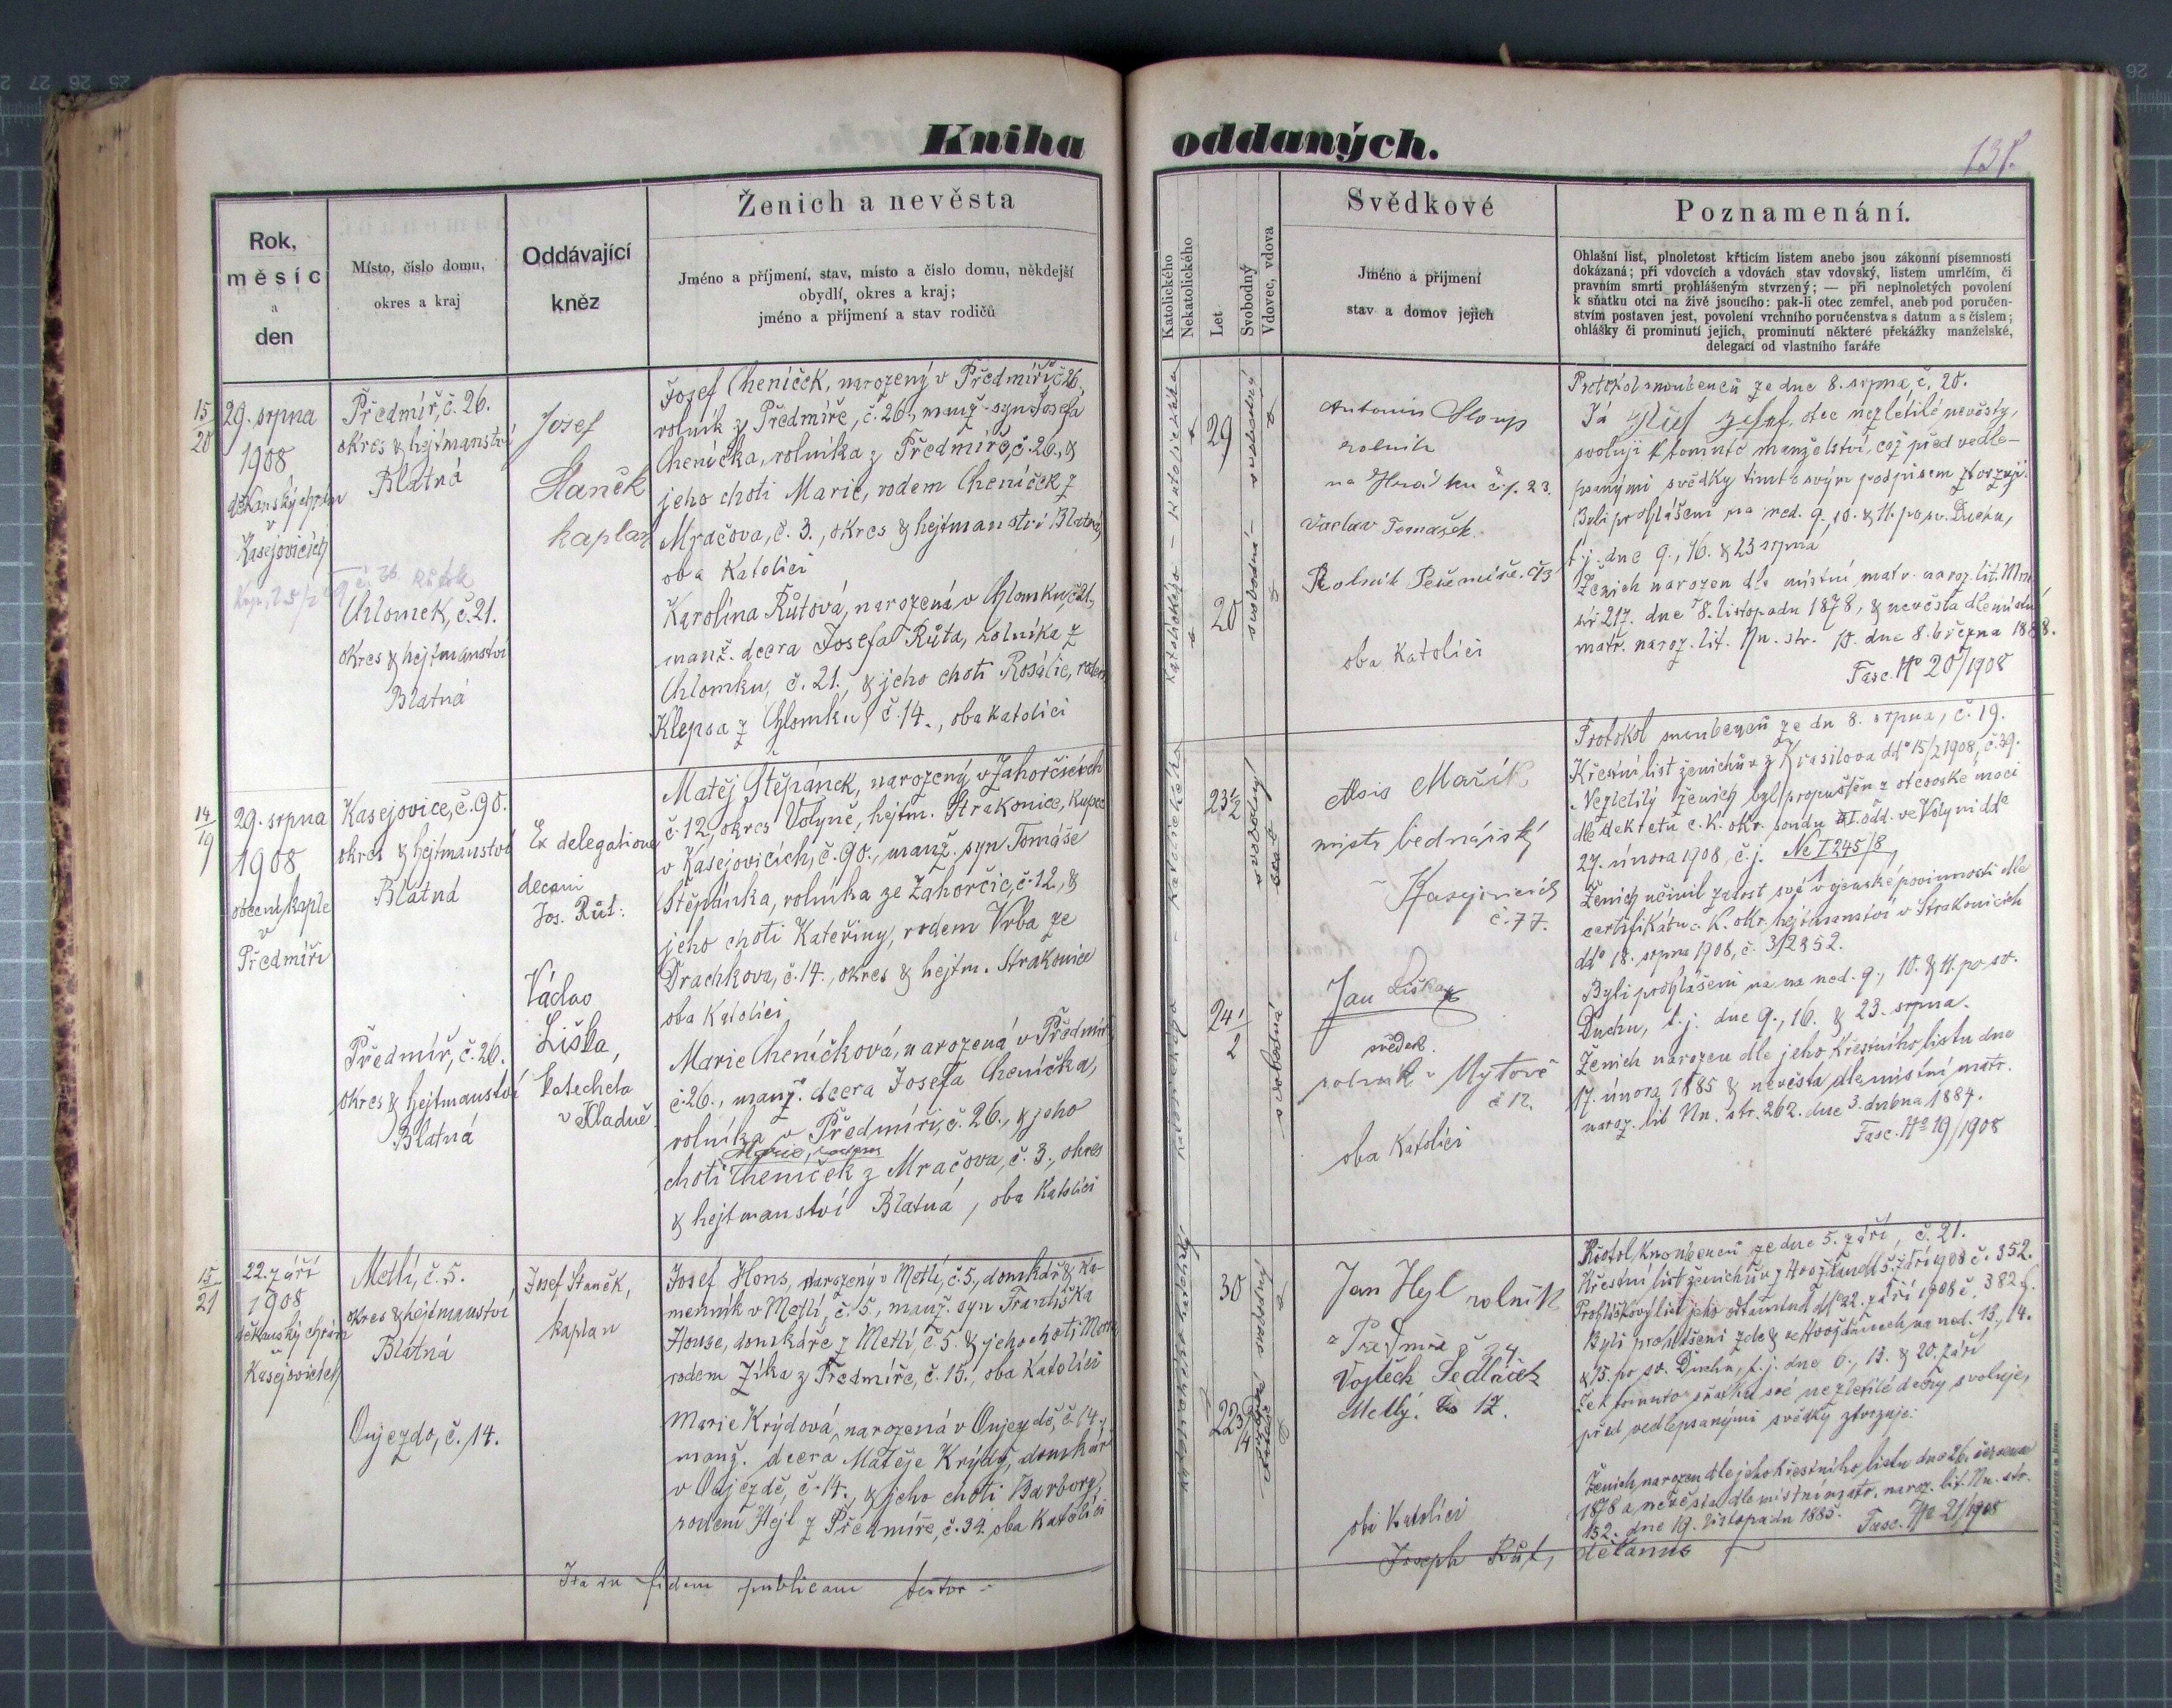 Kniha oddaných.
131.
Rok,
měsíc
a
den
Místo, číslo domu,
okres a kraj
Oddávající
kněz
Ženich a nevěsta
Jméno a příjmení, stav, místo a číslo domu, někdejší
obydlí, okres a kraj;
jméno a příjmení a stav rodičů
Katolického
Nekatolického
Let
Svobodný
Vdovec, vdova
Svědkové
Jméno a příjmení
stav a domov jejich
Poznamenání.
Ohlašní list, plnoletost křticím listem anebo jsou zákonní písemností
dokázaná; při vdovcích a vdovách stav vdovský, listem umrlčím, či
pravním smrti prohlášeným stvrzený; — při neplnoletých povolení
k sňatku otci na živě jsoucího: pak-li otec zemřel, aneb pod poručen-
stvím postaven jest, povolení vrchního poručenstva s datum a s číslem;
ohlášky či prominutí jejich, prominutí některé překážky manželské,
delegací od vlastního faráře
15
20
29. srpna
1908
děkanský chrám
v
Kasejovicích
Předmíř, č. 26.
okres & hejtmanství
Blatná
Chlomek, č. 21.
okres & hejtmanství
Blatná
Josef
Staněk
kaplan
Josef Cheníček, narozený v Předmíři č. 26.
rolník z Předmíře, č. 26., manž. syn Josefa
Cheníčka, rolníka z Předmíře, č. 26., &
jeho choti Marie, rodem Cheníček z
Mračova, č. 3., okres & hejtmanství Blatná,
oba Katolíci
Karolína Růtová, narozená v Chlomku, č. 21,
manž. dcera Josefa Růta, rolníka z
Chlomku, č. 21., & jeho choti Rosálie, rodem
Klepsa z Chlomku, č. 14., oba katolíci
29
20
svobodný
svobodná
Antonín Sloup
rolník
na Hrádku č. p. 23.
Václav Tomášek
Rolník
oba Katolíci
Protokol snoubenců ze dne 8. srpna, č. 20.
Já otec nezletilé nevěsty,
svoluji k tomuto manželství, což před vedle-
psanými svědky tímto svým podpisem stvrzuji.
Byli prohlášeni na ned. 9., 10. & 11. po sv. Duchu,
t. j. dne 9., 16. & 23 srpna
Ženich narozen dle místní matr. naroz. lit. Mm.
str 217. dne 8. listopadu 1878, & nevěsta dle místní
matr. naroz. lit. Nn. str. 10. dne 8. března 1888.
Fasc. No 20/1908
14
19
29. srpna
1908
obecní kaple
v
Předmíři
Kasejovice, č. 90.
okres & hejtmanství
Blatná
Předmíř, č. 26.
okres & hejtmanství
Blatná
Ex delegatione
decani
Jos. Růt:
Václav
Liška,
katecheta
v Kladně
Matěj Štěpánek, narozený v Zahorčicích
č. 12., okres Volyně, hejtm. Strakonice, kupec
v Kasejovicích, č. 90., manž. syn Tomáše
Štěpánka, rolníka ze Zahorčic, č. 12., &
jeho choti Kateřiny, rodem Vrba ze
Drachkova, č. 14., okres & hejtm. Strakonice
oba Katolíci
Marie Cheníčková, narozená v Předmíři
č. 26., manž. dcera Josefa Cheníčka,
rolníka v Předmíři, č. 26., & jeho
Marie, rodem
choti Cheníček z Mračova, č. 3., okres
& hejtmanství Blatná, oba Katolíci
23 1/2
24 1/2
svobodný
svobodná
Alois Mařík
mistr bednářský
v Kasejovicích
č. 77.
Jan Liška
svědek.
rolník v Mytově
č 12.
oba Katolíci
Protokol snoubenců ze dn 8. srpna, č. 19.
Křestní list ženichův z Krasilova ddo 15/2 1908, č. 39.
Nezletilý ženich byl propuštěn z otcovské moci
dle dekretu c. k. okr. soudu I. odd. ve Volyni ddo
27. února 1908, č. j. Nc I 245/8,
Ženich učinil zadost své vojenské povinnosti dle
certifikátu c. k. okr. hejtmanství v Strakonicích
ddo 18. srpna 1908, č. 32852.
Byli prohlášeni na na ned. 9., 10. & 11. po sv.
Duchu, t. j. dne 9., 16. & 23. srpna.
Ženich narozen dle jeho křestního listu dne
17. února 1885 & nevěsta dle místní matr.
naroz. lit Nn. str. 262. dne 3. dubna 1884.
Fasc. No 19/1908
15
21
22. září
1908
děkanský chrám
Kasejovicích
Metlí, č. 5.
okres & hejtmanství
Blatná
Oujezdo, č. 14.
Josef Staněk,
kaplan
Josef Hons, narozený v Metlí, č. 5., domkář & ka-
menník v Metlí, č. 5., manž. syn Františka
Honse, domkáře z Metlí, č. 5. & jeho choti Marie
rodem Zíka z Předmíře, č. 15., oba Katolíci
Marie Krýdová, narozená v Oujezdě, č. 14.,
manž. dcera Matěje Krýdy, domkáře
v Oujezdě, č. 14., & jeho choti Barbory,
rodem Hejl z Předmíře, č. 34 oba Katolíci
30
22 3/4
svobodný
Jan Hejl rolník
z Předmíře č 34
Vojtěch Sedláček
Metlý. čs 17.
obi Katolíci
Protokol snoubenců ze dne 5. září, č. 21.
Křestní list ženichův z Hvožďan ddo 5. září 1908 č. 352.
Prohláškový list jeho odtamtud ddo 22. září 1908 č. 382.
Byli prohlášeni zde & ve Hvožďanech na ned. 13., 14.
& 15. po sv. Duchu, t. j. dne 6., 13. & 20. září
Že k tomuto sňatku své nezletilé dcery svoluje,
před vedlepsanými svědky stvrzuje:
Ženich narozen dle jeho křestního listu dne 26. června
1878 a nevěsta dle místní matr. naroz. lit. Nn. str.
152. dne 19. listopadu 1885. Fasc. No 21/1908
Ita in fidem publicam testor - Joseph Růt, děkanus